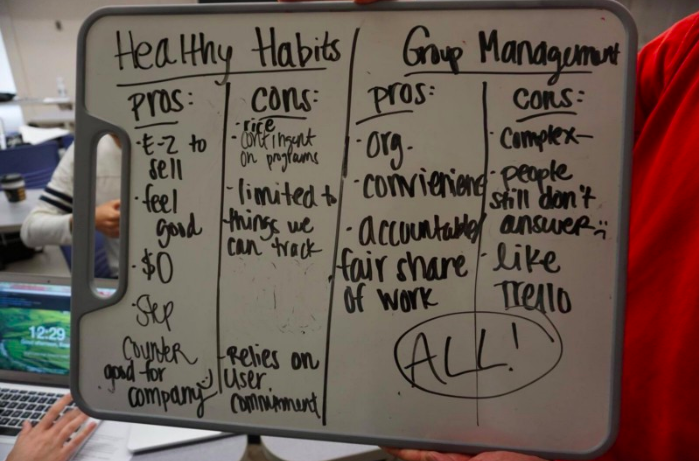 Healthy Habits
pros:
·E-Z to
sell
·feel
good
·$0
·Step
Counter
·good for
company:)
cons:
-rice
contingent
on programs
-limited to
things we
can track
-Relies on
user
commitment
Group Management
pros:
·org.
·convienient
·accountable
·fair share
of work
cons:
·complex-
·people
still don't
answer :(
·like
Trello
ALL!
12:29